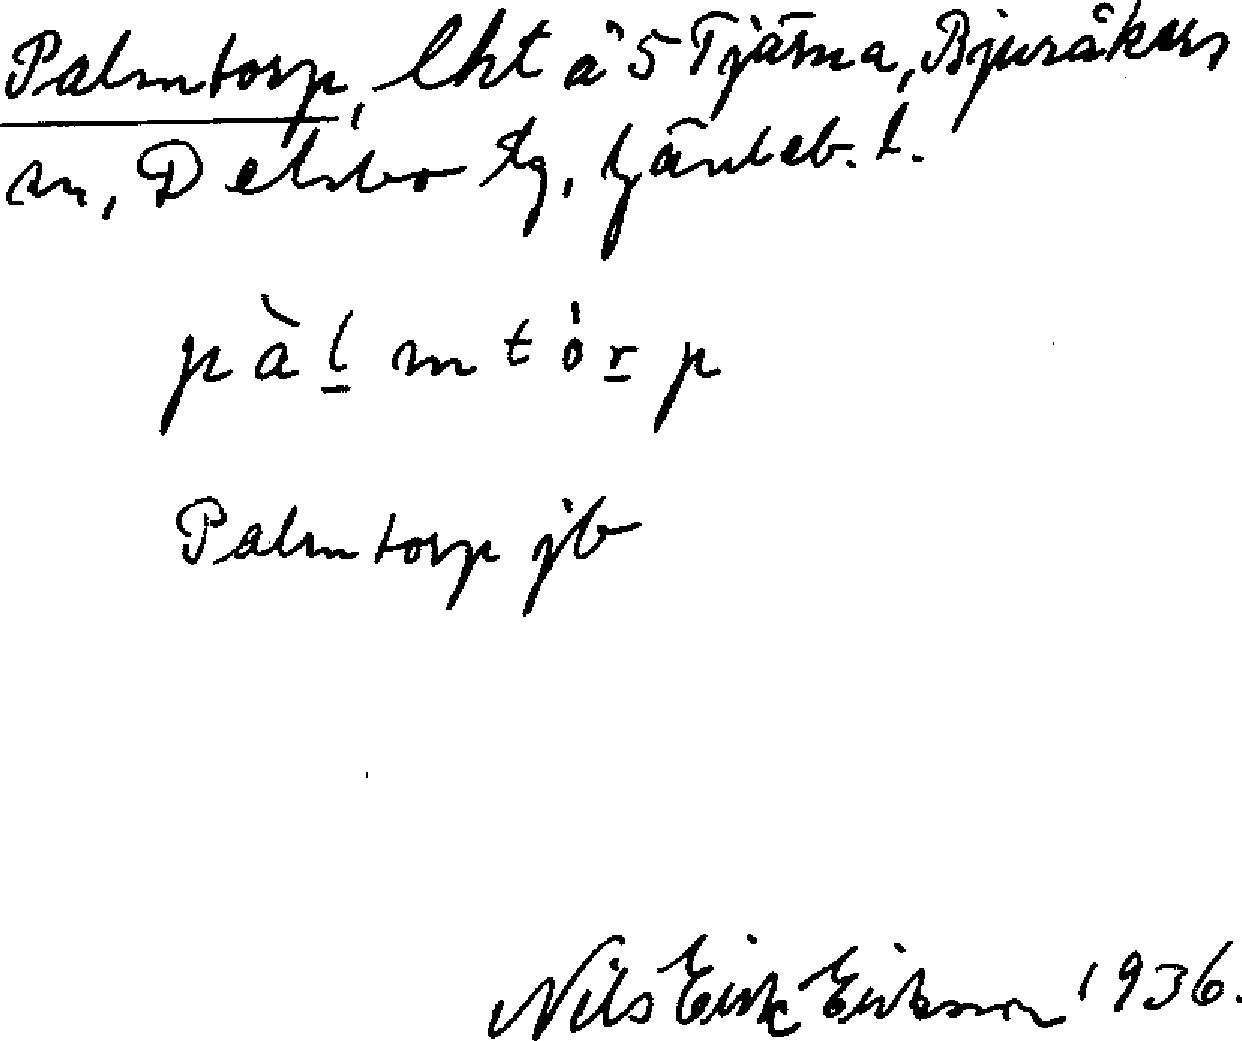 Palmtorp, lht å 5 Tjärna, Bjuråkers
sn, Delsbo tg, Gävleb. l.
pàlmtórp
Palmtorp jb
Nils Erik Erikson 1936.